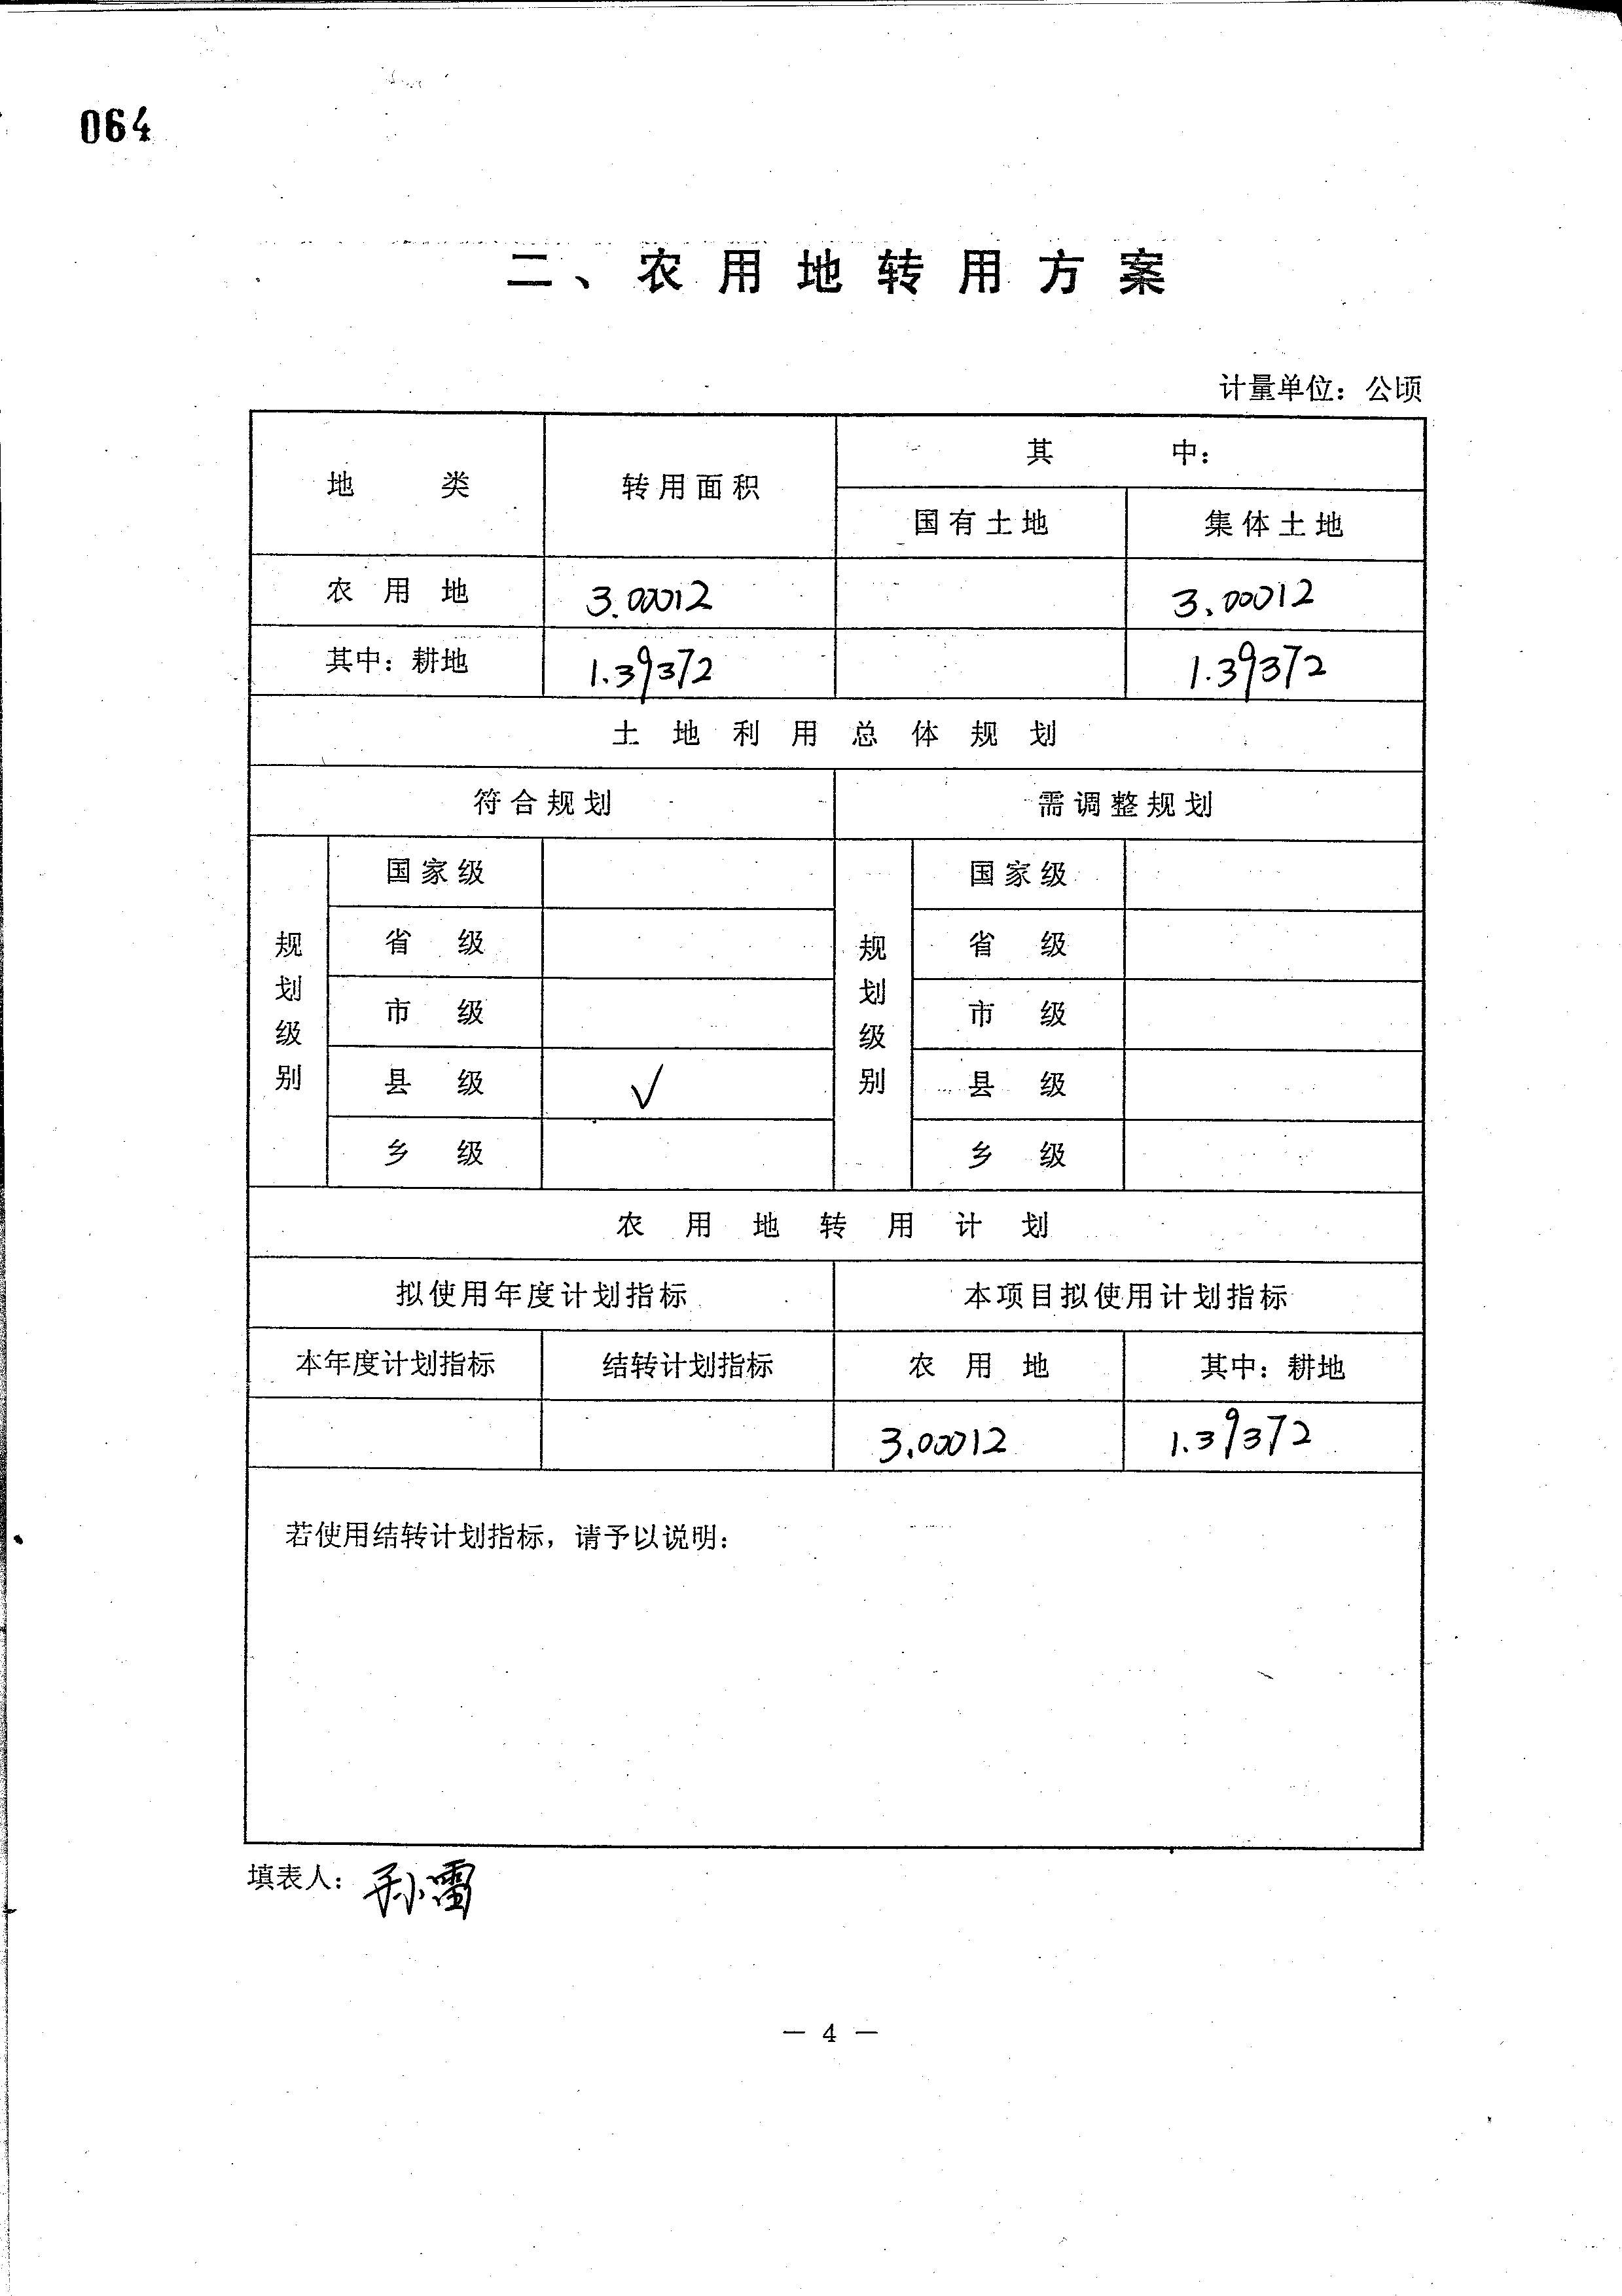 064
二、农用地转用方案
计量单位：公顷
地类 转用面积 其中：
国有土地 集体土地
农用地 3.00012 3.00012
其中：耕地 1.39372 1.39372
土地利用总体规划
符合规划 需调整规划
规划级别 国家级 规划级别 国家级
省级 省级
市级 市级
县级 √ 县级
乡级 乡级
农用地转用计划
拟使用年度计划指标 本项目拟使用计划指标
本年度计划指标 结转计划指标 农用地 其中：耕地
3.00012 1.39372
若使用结转计划指标，请予以说明：
填表人：孙雷
— 4 —